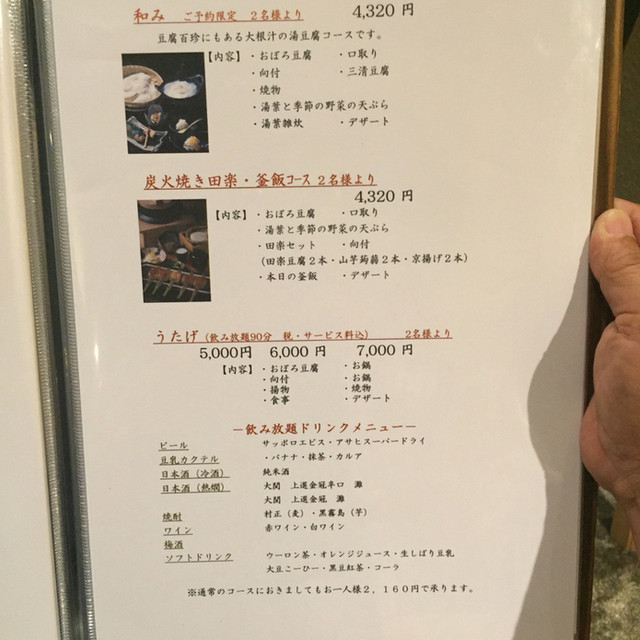 和み ご予約限定 2名様より 4,320 円
豆腐百珍にもある大根汁の湯豆腐コースです。
【内容】・おぼろ豆腐 ・口取り
・向付 ・三清豆腐
・焼物
・湯葉と季節の野菜の天ぷら
・湯葉雑炊 ・デザート
炭火焼き田楽・釜飯コース 2名様より
4,320 円
【内容】・おぼろ豆腐 ・口取り
・湯葉と季節の野菜の天ぷら
・田楽セット ・向付
(田楽豆腐2本・山芋蒟蒻2本・京揚げ2本)
・本日の釜飯 ・デザート
うたげ(飲み放題90分 税・サービス料込) 2名様より
5,000円 6,000 円 7,000 円
【内容】・おぼろ豆腐 ・お鍋
・向付 ・お鍋
・揚物 ・焼物
・食事 ・デザート
―飲み放題ドリンクメニュー―
ビール サッポロエビス・アサヒスーパードライ
豆乳カクテル ・バナナ・抹茶・カルア
日本酒(冷酒) 純米酒
日本酒(熱燗) 大関 上選金冠辛口 灘
大関 上選金冠 灘
焼酎 村正(麦)・黒霧島(芋)
ワイン 赤ワイン・白ワイン
梅酒
ソフトドリンク ウーロン茶・オレンジジュース・生しぼり豆乳
大豆こーひー・黒豆紅茶・コーラ
※通常のコースにおきましてもお一人様2,160円で承ります。